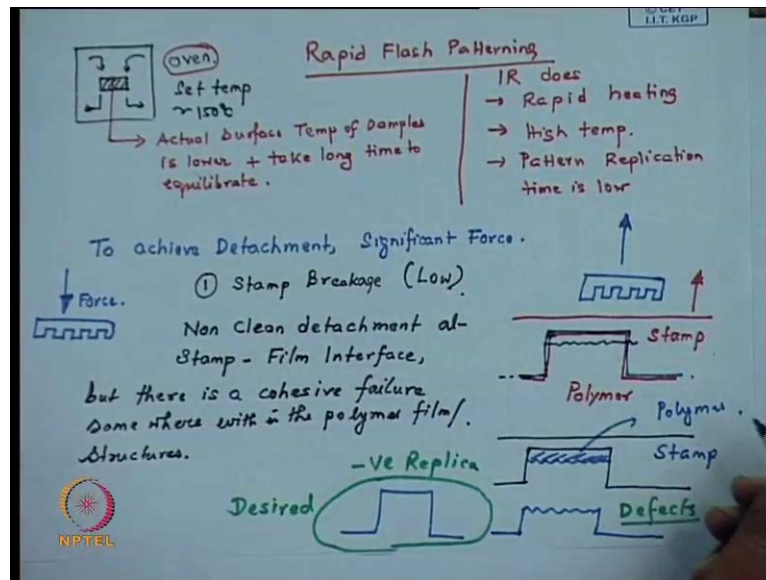 I.I.T. KGP
Rapid Flash Patterning
Oven
Set temp
~ 150°C
Actual Surface Temp of Samples
is lower + take long time to
equilibrate.
IR does
→ Rapid heating
→ High temp.
→ Pattern Replication
time is low
To achieve Detachment, Significant Force.
Force.
① Stamp Breakage (Low)
Non Clean detachment at
Stamp - Film Interface,
but there is a cohesive failure
some where with in the polymer film/.
Structures.
Stamp
Polymer
Polymer.
Stamp
-ve Replica
Desired
Defects
NPTEL